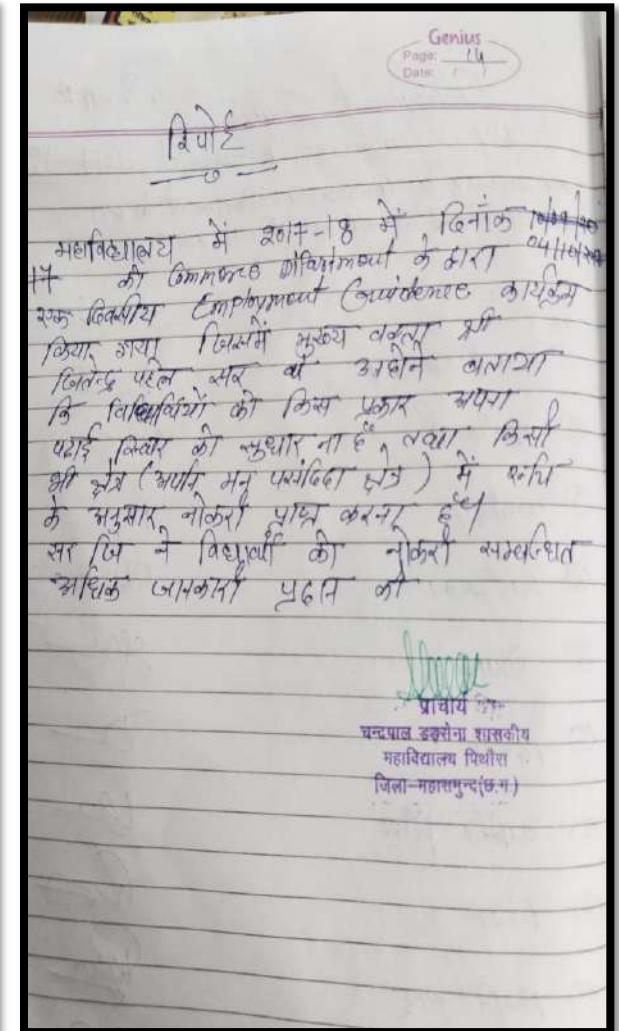 Genius
Page: 14
Date: / /
रिपोर्ट
महाविद्यालय में 2017-18 में दिनाँक
17 को Commerce Department के द्वारा 04/10/20
एक दिवसीय Employment Guidence कार्यक्रम
किया गया जिसमें मुख्य वक्ता श्री
जितेन्द्र पटेल सर थे उन्होंने बताया
कि विद्यार्थियों को किस प्रकार अपना
पढाई स्किार को सुधार ना है, तथा किसी
भी क्षेत्र (अपने मन पसंदिदा क्षेत्र) में रूचि
के अनुसार नोकरी प्राप्त करना है।
सर जि ने विद्यार्थी को नोकरी सम्बन्धित
अधिक जानकारी प्रदान की
प्राचार्य
चन्द्रपाल डड़सेना शासकीय
महाविद्यालय पिथौरा
जिला-महासमुन्द(छ.ग.)